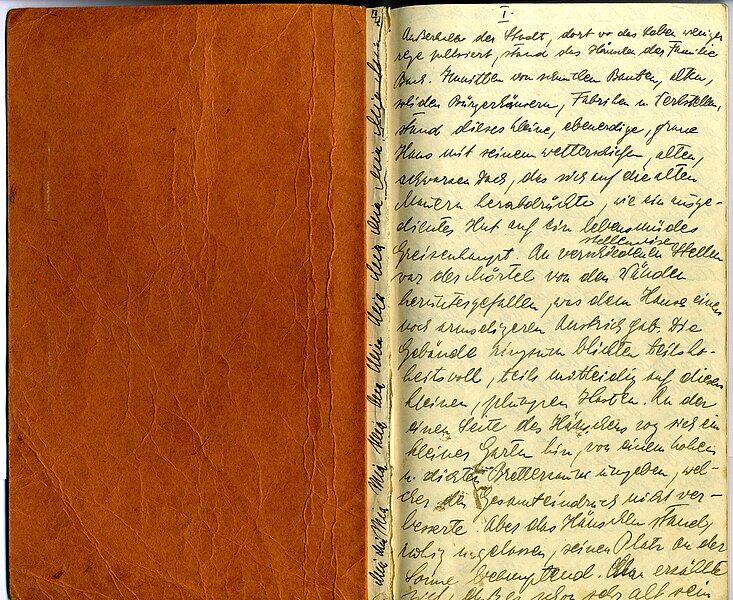 I.
Außerhalb der Stadt, dort wo das Leben weniger
rege pulsiert, stand das Häuschen der Familie
Bach. Inmitten von Bauten, alten,
soliden Bürgerhäusern, Fabriken u.
stand dieses kleine, ebenerdige, graue
Haus mit seinem wetterschiefen, alten,
schwarzen Dach, das sich auf die alten
Mauern herabdrückte, wie ein ausge-
dientes Hut auf ein lebensmüdes
Greisenhaupt. An verschiedenen Stellen
stellenweise
war der Mörtel von den Wänden
heruntergefallen, was dem Hause einen
noch armseligeren Anstrich gab. Die
Gebäude ringsum blickten teils ho-
heitsvoll, teils mitleidig auf diesen
kleinen, Kasten. An der
einen Seite des Häuschens zog sich ein
kleiner Garten hin, von einem hohen
u. dichten Bretterzaun umgeben, wel-
cher den Gesamteindruck nicht ver-
besserte. Aber das Häuschen stand
ruhig u. gelassen, seinen Platz an der
Sonne behauptend. Man erzählte
sich, daß es schon sehr alt sein
Mia Mia Mia Mia Mia Mia Mia Mia Mia Mia Mia